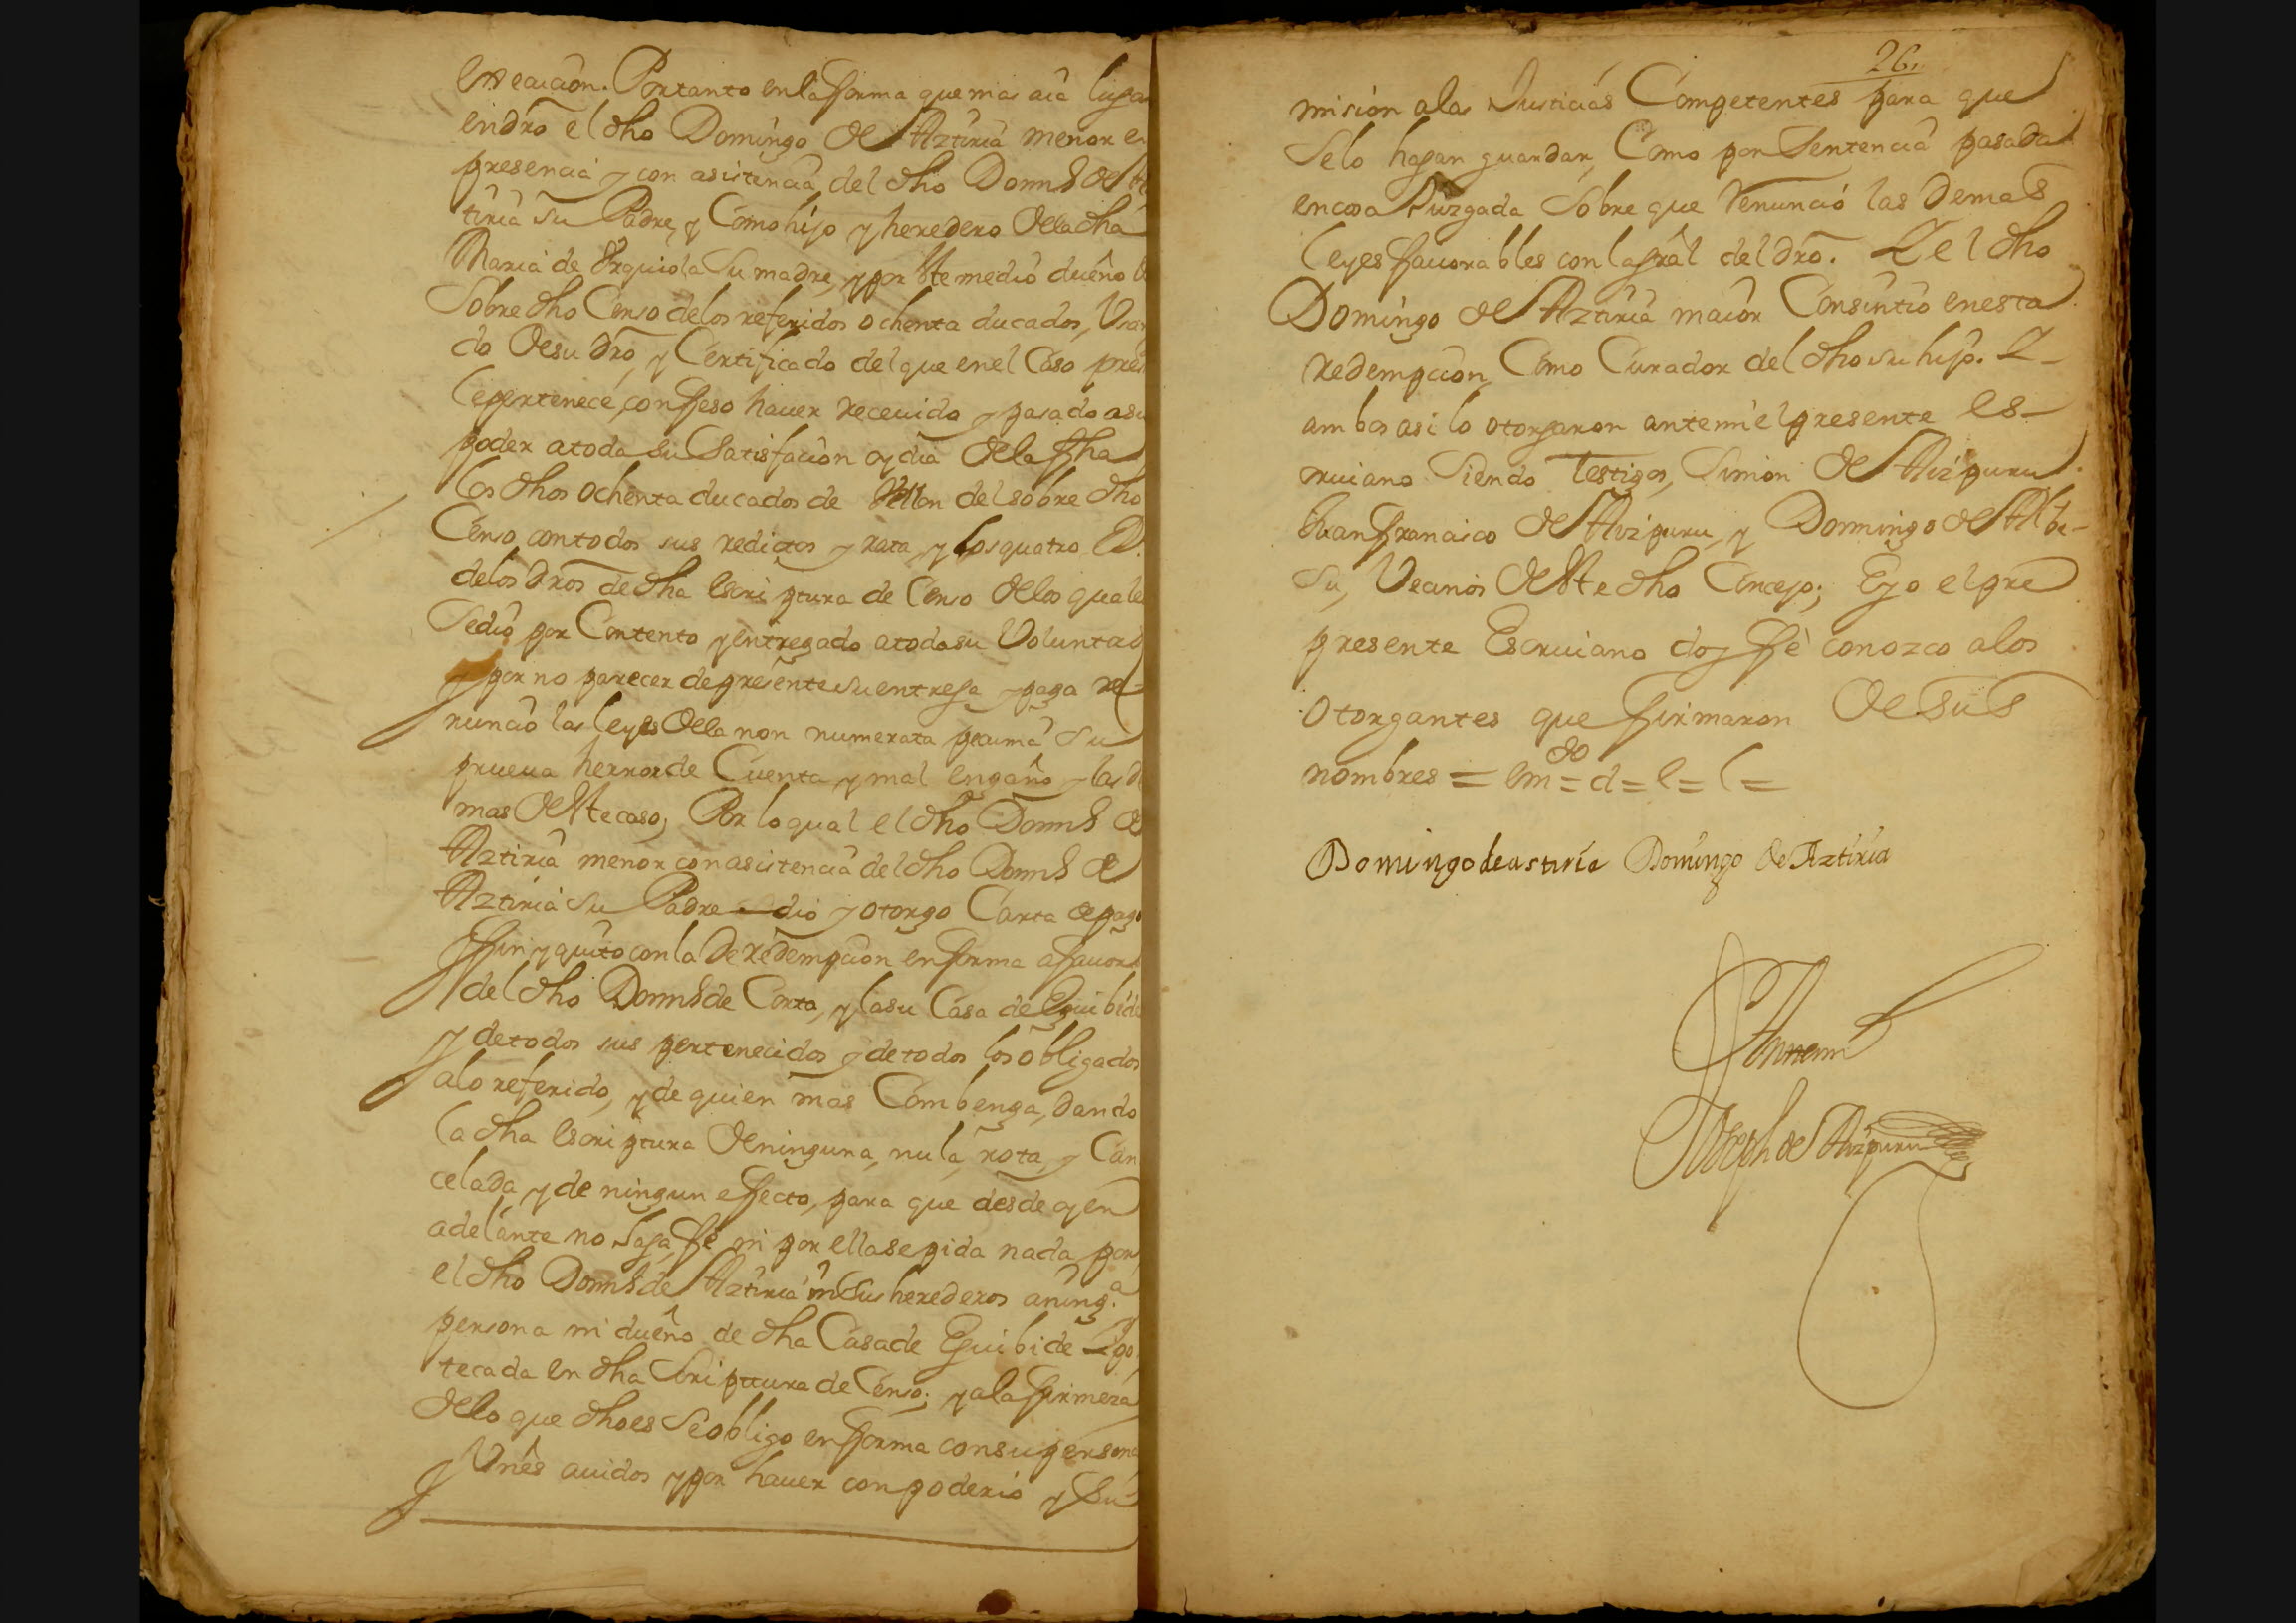 Creacion. Portanto enla forma que mas aia lugar
endro el dho Domingo de Aztiria menor en
presencia y con asistencia del dho Domº de Az
tiria su Padre, y Como hijo y heredero dela dha
Maria de Vrquiola Su madre, y por este medio dueño
Sobre dho Censo delos referidos ochenta ducados, Vsan
do de su dro, y Certificado del que enel Caso pres
le pertenece, confeso hauer receuido y pasado asu
poder atoda su Satisfacion oy dia dela fha
los dhos ochenta ducados de Vellon del sobre dho
Censo contodos sus redictos y rata, y los quatro
delos dros de dha escriptura de Censo delos quales
Sedio por Contento y entregado atoda su Voluntad
y por no parecer de presente su entrega y paga re-
nuncio las leyes dela non numerata pecunia Su
prueua herror de Cuenta y mal engaño y las de
mas deste caso; Por lo qual el dho Domº de
Aztiria menor con asistencia del dho Domº de
Aztiria su Padre dio y otorgo Carta de pago
fin y quito con la de redempcion enforma afauor
del dho Domº de Corta, y la su Casa de Eguibide
y de todos sus pertenecidos y de todos los obligados
alo referido, y de quien mas Combenga, dando
la dha escriptura de ninguna, nula, rota, y Can
celada y de ningun effecto, para que desde oy en
adelante no haga fe ni por ella se pida nada por
el dho Domº de Aztiria ni sus herederos aning.ª
persona ni dueño de dha Casa de Eguibide Ypo
tecada en dha Scriptura de Censo; y ala firmeza
delo que dho es Se obligo enforma consu persona
y Vnes auidos y por hauer con poderio y su
26.
mision alas Justicias Competentes para que
Selo hagan guardar, Como por Sentencia pasada
en cosa Juzgada Sobre que renuncio las demas
leyes fauorables con la gral del dro. Y el dho
Domingo de Aztiria maior Consintio enesta
redempcion Como Curador del dho su hijo. Y-
ambos asi lo otorgaron antemi el presente es-
criuano Siendo testigos, Simon de Aizpuru
Juan francisco de Aizpuru, y Domingo de Albi-
su, Vecinos deste dho Concejo; Eyo el pre
presente Escriuano doy fe conozco alos
otorgantes que firmaron de sus
nombres = em = do = d = e = l =
Domingo de astiria Domingo de Aztiria
Antemi
Joseph de Aizpuru